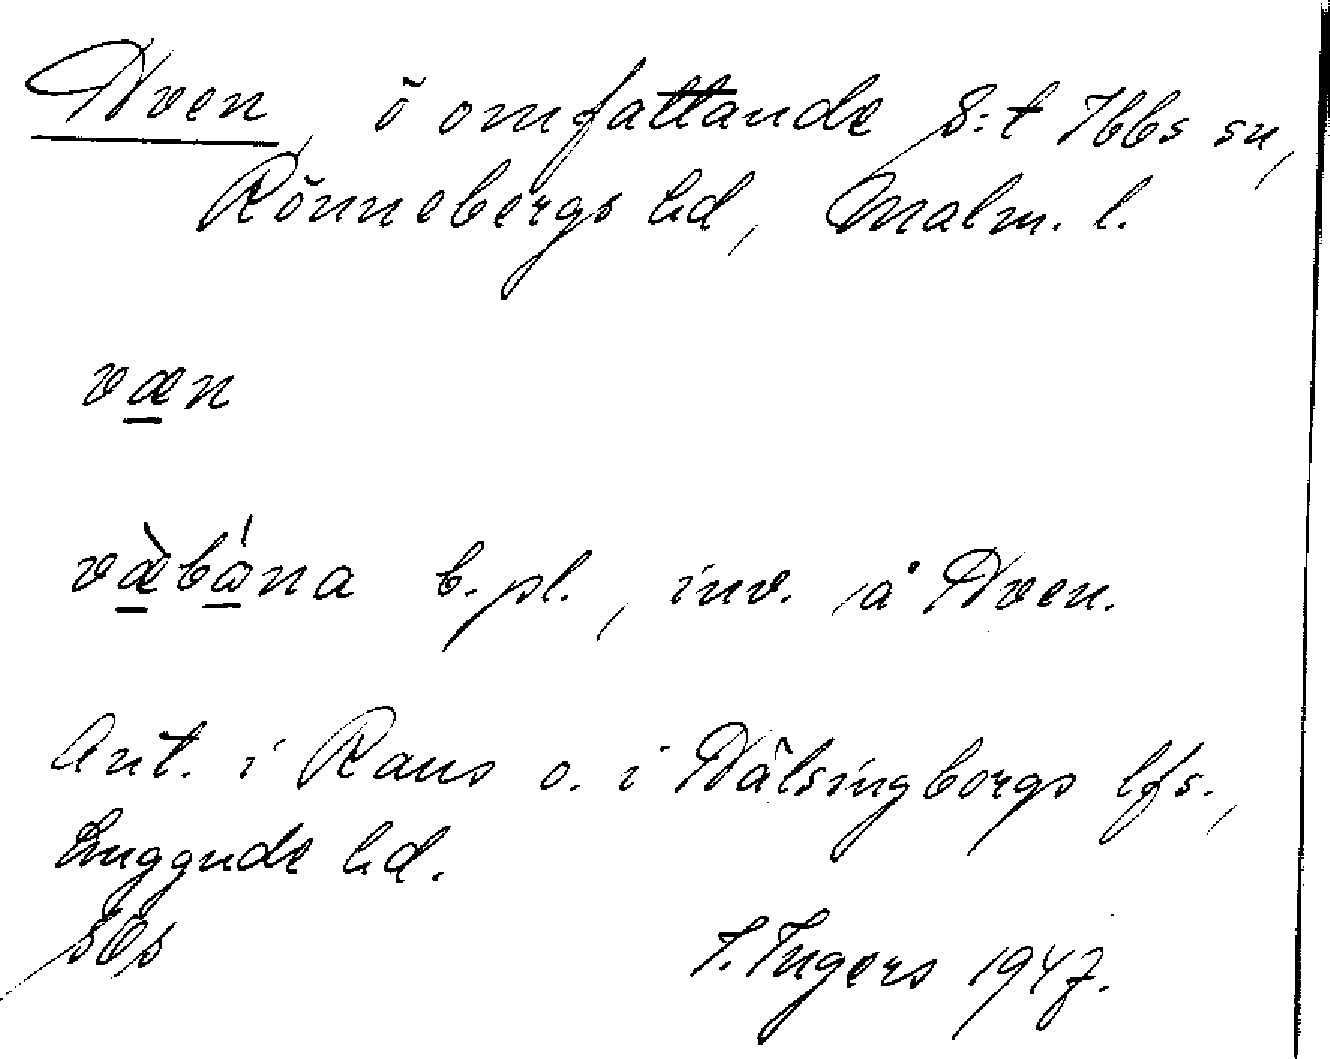 Hven, ö omfattande S:t Ibbs sn,
Rönnebergs hd, Malm. l.
væn
væ̀bó̱na b.pl., inv. på Hven.
Ant. i Raus o. i Hälsingborgs lfs.,
Luggude hd.
I. Ingers 1947.